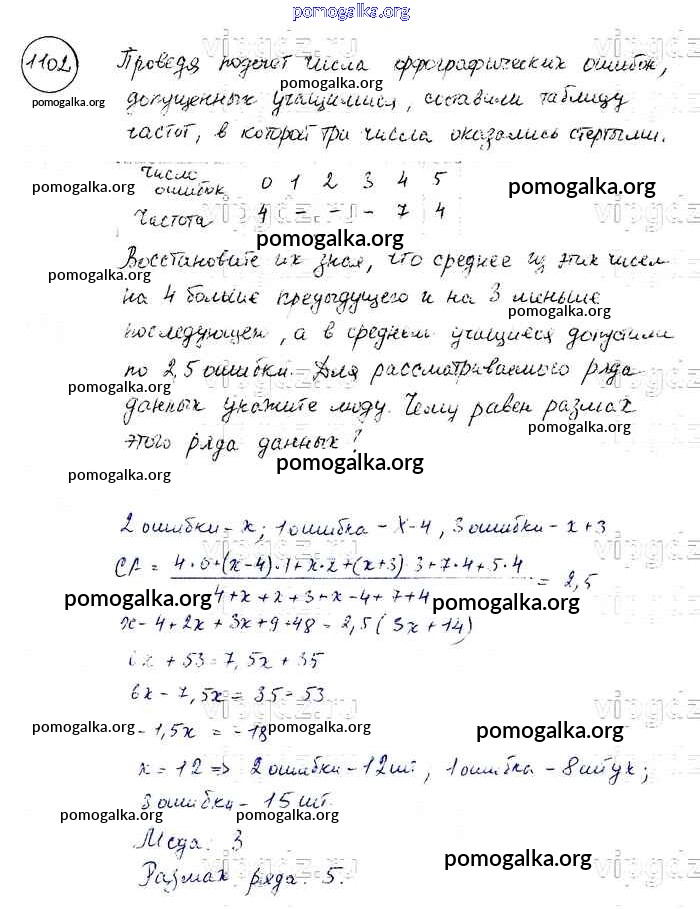 pomogalka.org
1102 Проведя подсчет числа орфографических ошибок,
pomogalka.org
pomogalka.org
допущенных учащимися, составили таблицу
частот, в которой три числа оказались стертыми.
Число ошибок 0 1 2 3 4 5
pomogalka.org pomogalka.org
Частота 4 – – – 7 4
pomogalka.org
Восстановите их зная, что среднее из этих чисел
pomogalka.org
на 4 больше предыдущего и на 3 меньше
pomogalka.org
последующем, а в среднем учащиеся допустили
по 2,5 ошибки. Для рассматриваемого ряда
pomogalka.org
данных укажите моду. Чему равен размах
pomogalka.org
этого ряда данных?
pomogalka.org
pomogalka.org
2 ошибки – x; 1 ошибка – x-4, 3 ошибки – x+3
СА = 4·0+(x-4)·1+x·2+(x+3) 3+7·4+5·4 = 2,5
4+x+x+3+x-4+7+4
pomogalka.org pomogalka.org
x-4+2x+3x+9+48=2,5(3x+14)
6x+53=7,5x+35
6x-7,5x=35-53
pomogalka.org pomogalka.org pomogalka.org
-1,5x = -18
x=12 => 2 ошибки-12шт, 1 ошибка - 8 штук;
3 ошибки - 15 шт.
pomogalka.org pomogalka.org
Мода: 3
pomogalka.org
Размах ряда: 5.